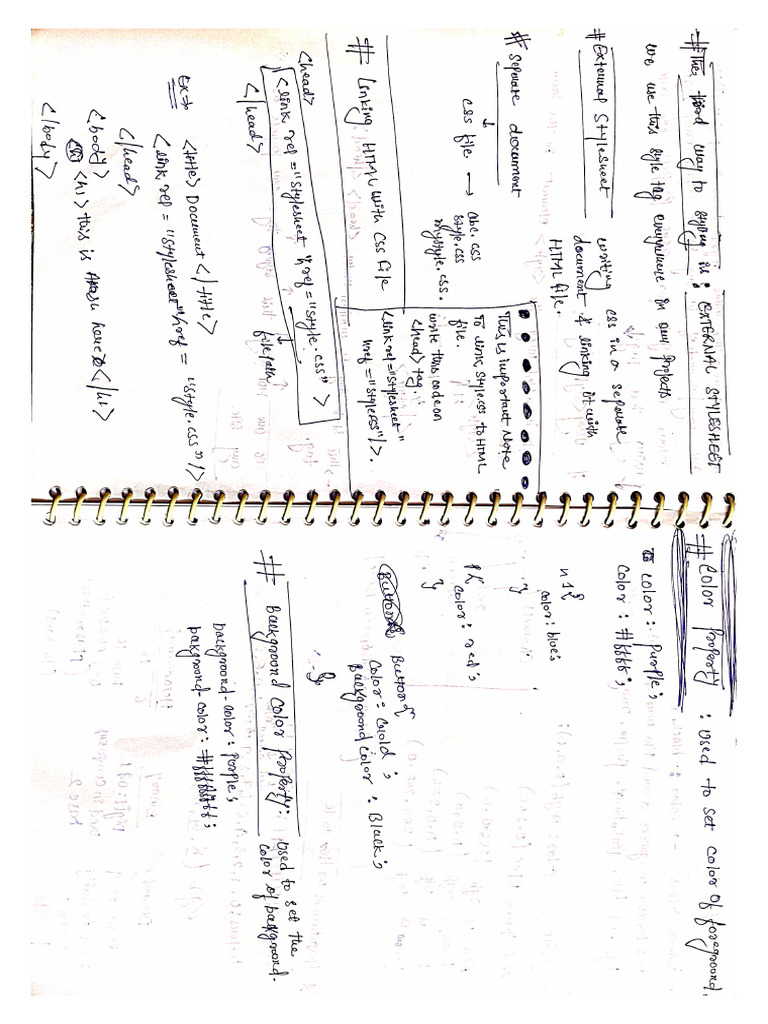 # The third way to styling is: EXTERNAL STYLESHEET
we use this style tag everywhere in our projects
# External Stylesheet
writing css in a separate
document & linking it with
HTML file.
# Separate document
↓
css file → abc.css
style.css
mystyle.css.
This is important Note
To link style.css to HTML
file.
write this code on
<head> tag.
<link rel="stylesheet"
href="style.css"/>.
# Linking HTML with CSS File
<head>
<link rel="stylesheet" href="style.css">
</head>
file path
Ex⇒ <title> Document </title>
<link rel="stylesheet" href="style.css"/>
</head>
<body>
<h1> this is here </h1>
</body>
# Color Property : used to set color of foreground.
color: purple;
color: #ffff;
h1{
color: blue;
}
p{
color: red;
}
Button{
color: Gold;
Background color: Black;
}
# Background Color Property: used to set the
color of background.
background-color: purple;
background-color: #ffffff;